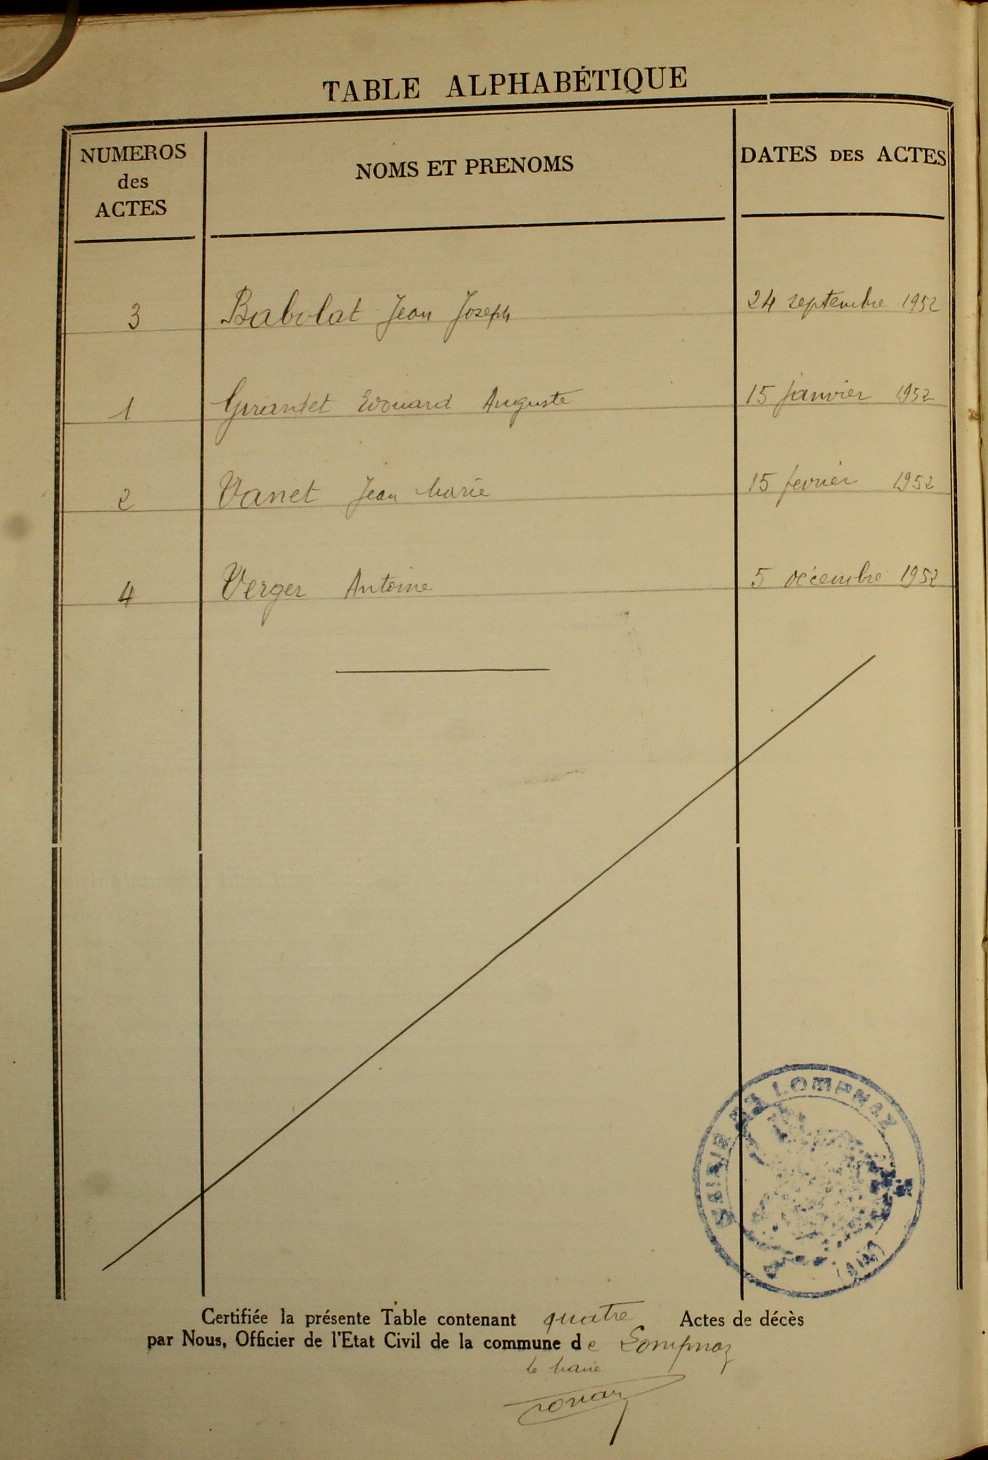 TABLE ALPHABÉTIQUE
NUMEROS
des
ACTES
NOMS ET PRENOMS
DATES DES ACTES
3 Babolat Jean Joseph 24 septembre 1952
1 Edouard Auguste 15 janvier 1952
2 Vanet Jean Marie 15 fevrier 1952
4 Verger Antoine 5 décembre 1952
MAIRIE DE LOMPNAZ
(AIN)
Certifiée la présente Table contenant quatre Actes de décès
par Nous, Officier de l'Etat Civil de la commune de Lompnaz
le maire